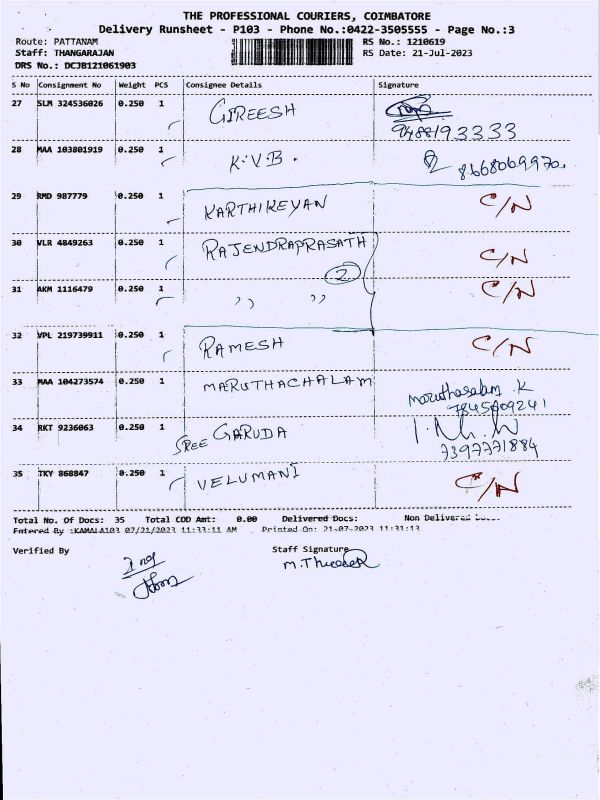 THE PROFESSIONAL COURIERS, COIMBATORE
Delivery Runsheet - P103 - Phone No.:0422-3505555 - Page No.:3
Route: PATTANAM RS No.: 1210619
Staff: THANGARAJAN RS Date: 21-Jul-2023
DRS No.: DCJB121061903
S No Consignment No Weight PCS Consignee Details Signature
27 SLM 324536026 0.250 1 GIREESH
9488193333
28 MAA 103801919 0.250 1 K.V.B. 8668069970.
29 RMD 987779 0.250 1 KARTHIKEYAN C/N
30 VLR 4849263 0.250 1 RAJENDRAPRASATH C/N
2
31 AKM 1116479 0.250 1 ,, ,, C/N
32 VPL 219739911 0.250 1 RAMESH C/N
33 MAA 104273574 0.250 1 MARUTHACHALAM
7845809241
34 RKT 9236063 0.250 1 SREE GARUDA
7397771884
35 TKY 868847 0.250 1 VELUMANI C/N
Total No. Of Docs: 35 Total COD Amt: 0.00 Delivered Docs: Non Delivered Docs:
Entered By :KAMALA103 07/21/2023 11:33:11 AM Printed On: 21-07-2023 11:31:13
Verified By Staff Signature